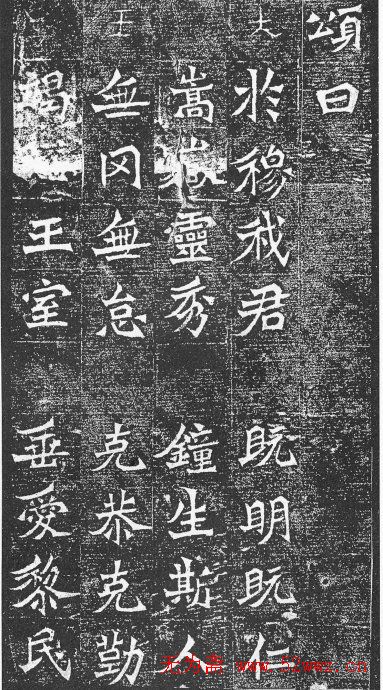 頌曰
於穆我君 既明既仁
嵩嶽靈秀 鐘生斯人
無罔無怠 克恭克勤
竭 王室 垂愛黎民
无为斋 www.52wwz.cn